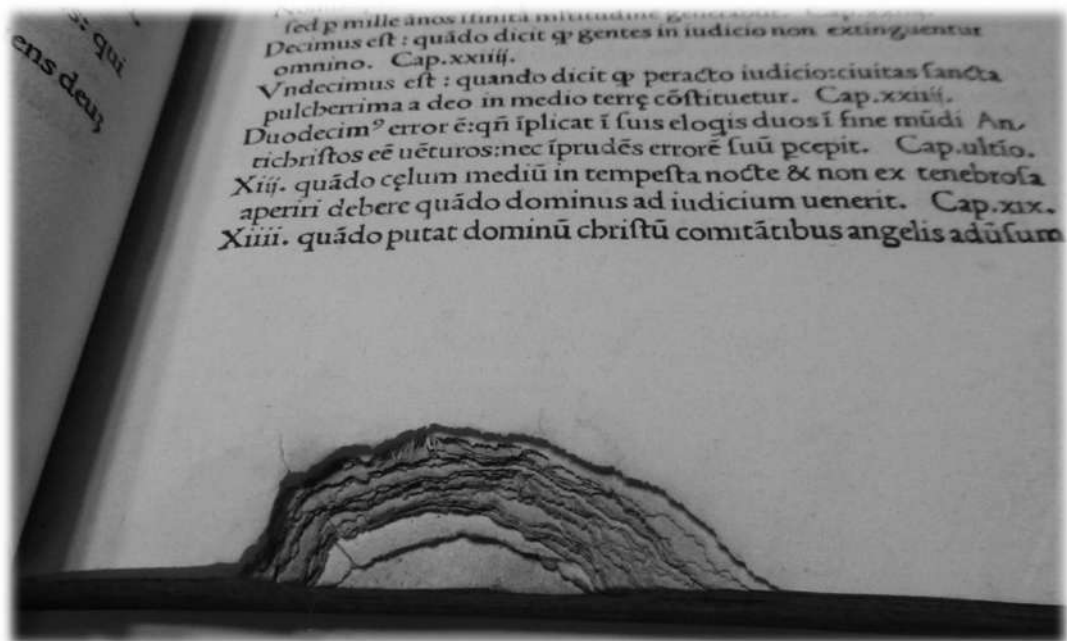 s: qui
ens deuʒ
sed p mille ános ifinitá mltitudine generabūt. Cap.
Decimus eſt : quádo dicit ꝙ gentes in iudicio non extinguentur
omnino. Cap.xxiiij.
Vndecimus eſt : quando dicit ꝙ peracto iudicio:ciuitas ſancta
pulcherrima a deo in medio terrę cōſtituetur. Cap.xxiiij.
Duodecimꝰ error ē:qñ īplicat ī ſuis elogis duos ī fine mūdi An,
tichriſtos eē uēturos:nec īprudēs errorē ſuū pcepit. Cap.ultīo.
Xiij. quádo cęlum mediū in tempeſta nocte & non ex tenebroſa
aperiri debere quádo dominus ad iudicium uenerit. Cap.xix.
Xiiii. quádo putat dominū chriſtū comitátibus angelis adūſum